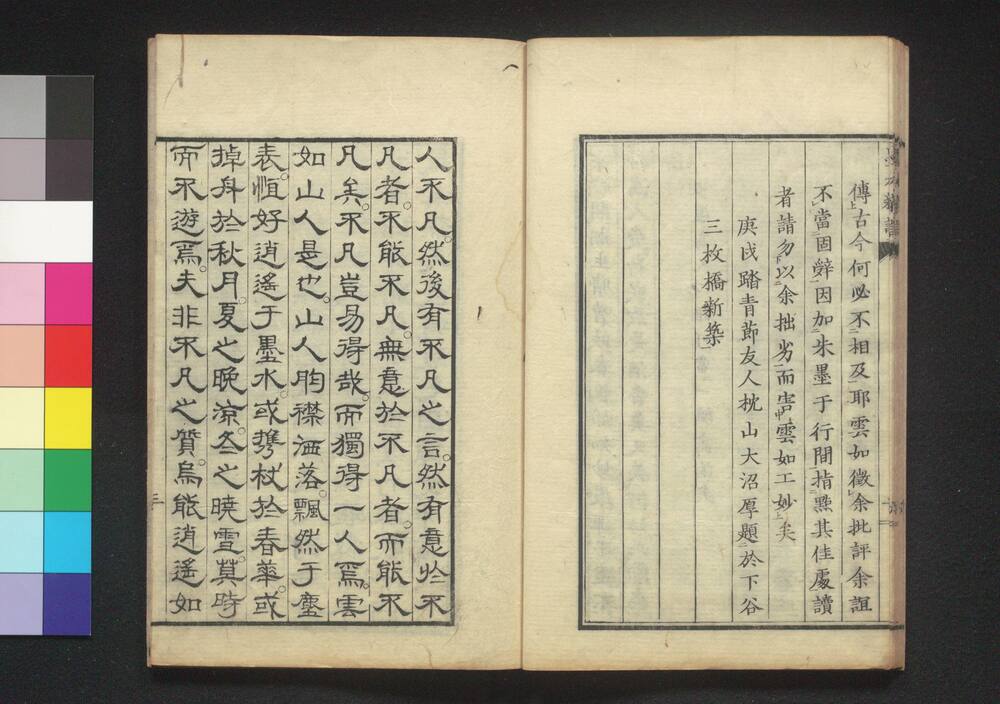 傳古今何必不相及耶雲如徵余批評余誼
不當固辭因加朱墨于行間指點其佳處讀
者請勿以余拙劣而害雲如工妙矣
庚戌踏青節友人枕山大沼厚題於下谷
三枚橋新築
人不凡。然後有不凡之言。然有意於不
凡者。不能不凡。無意於不凡者。而能不
凡矣。不凡豈易得哉。而獨得一人焉。雲
如山人是也。山人胸襟洒落。飄然于塵
表。恒好逍遙于墨水。或攜杖於春華。或
掉舟於秋月。夏之晚涼。冬之曉雪。莫時
而不遊焉。夫非不凡之質。烏能逍遙如
三